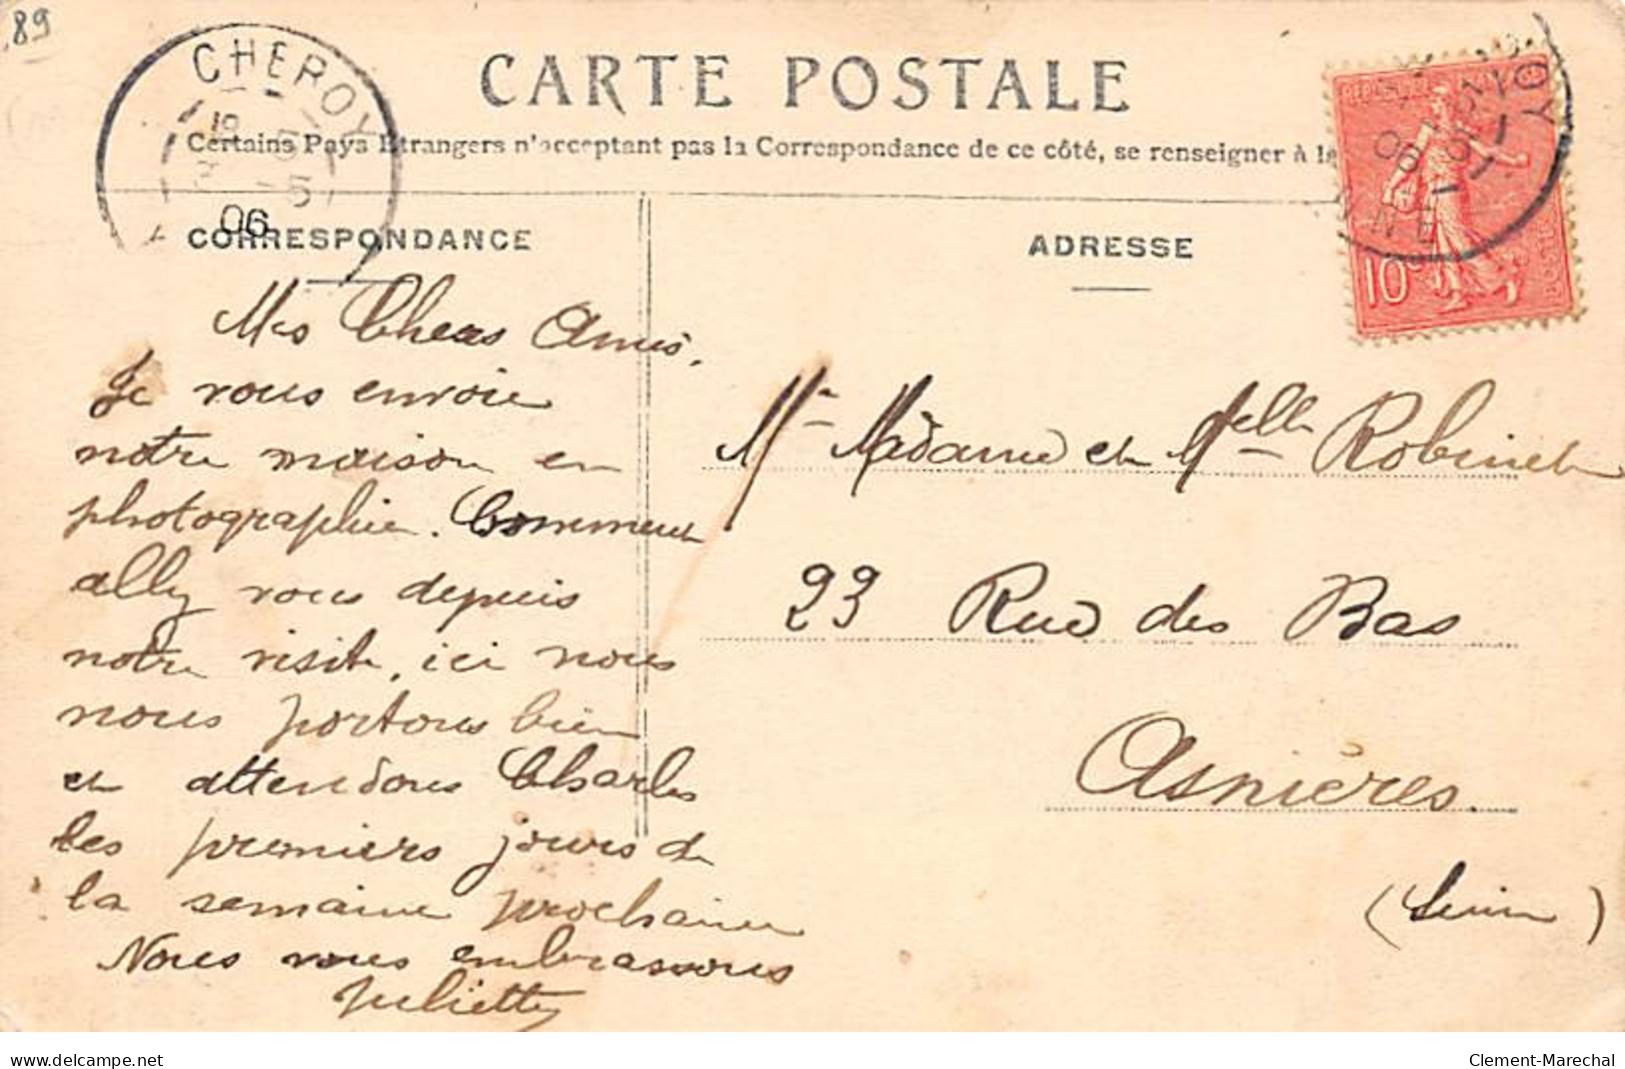 89
CHEROY
CARTE POSTALE
Certains Pays Etrangers n'acceptant pas la Correspondance de ce côté, se renseigner à la
19
5
5
06
CORRESPONDANCE
ADRESSE
REPUBLIQUE
10c
POSTES
Mes Chers Amis,
Je vous envoie
notre maison en
photographie. Comment
allez vous depuis
notre visite, ici nous
nous portons bien
et attendons Charles
les premiers jours de
la semaine prochaine
Nous vous embrassons
Juliette
Mr Madame et Melle Robinet
23 Rue des Bas
Asnières
(Seine)
www.delcampe.net
Clement-Marechal